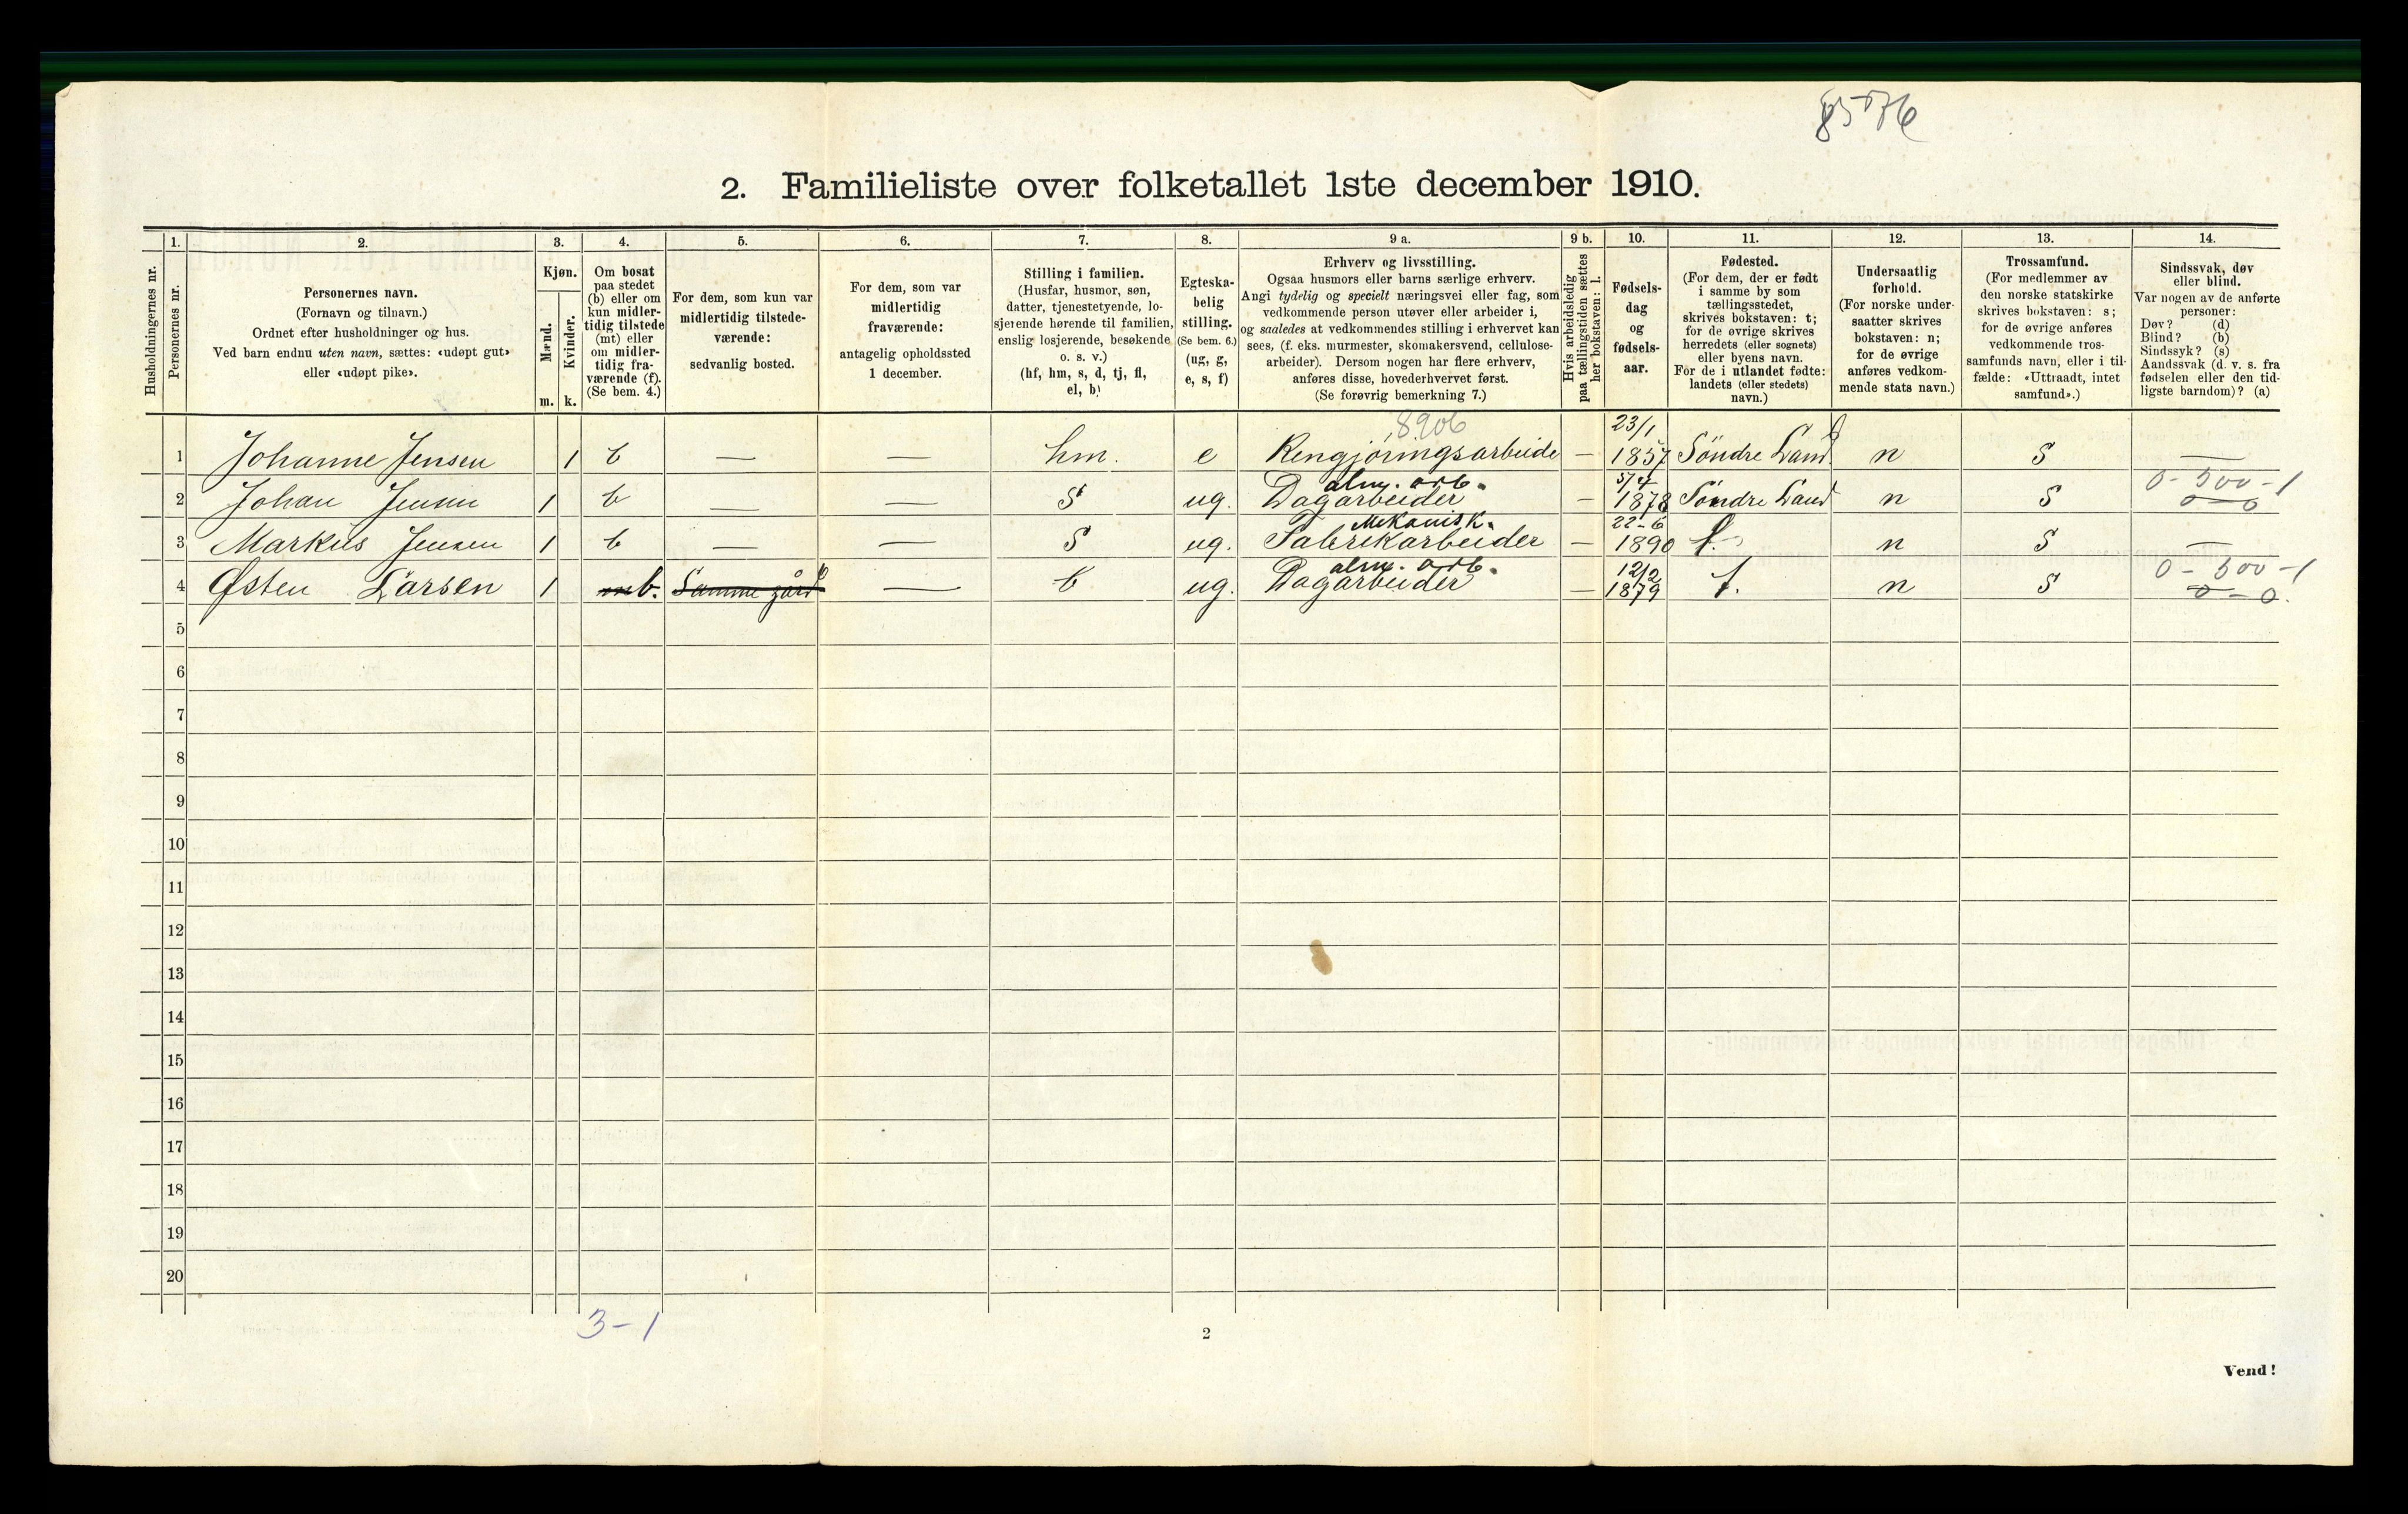 8576
2. Familieliste over folketallet 1ste december 1910.
Husholdningernes nr.
1.
Personernes nr.
2.
Personernes navn.
(Fornavn og tilnavn.)
Ordnet efter husholdninger og hus.
Ved barn endnu uten navn, sættes: «udøpt gut»
eller «udøpt pike».
3.
Kjøn.
Mænd.
Kvinder.
m. k.
4.
Om bosat
paa stedet
(b) eller om
kun midler-
tidig tilstede
(mt) eller
om midler-
tidig fra-
værende (f).
(Se bem. 4.)
5.
For dem, som kun var
midlertidig tilstede-
værende:
sedvanlig bosted.
6.
For dem, som var
midlertidig
fraværende:
antagelig opholdssted
1 december.
7.
Stilling i familien.
(Husfar, husmor, søn,
datter, tjenestetyende, lo-
sjerende hørende til familien,
enslig losjerende, besøkende
o. s. v.)
(hf, hm, s, d, tj, fl,
el, b)
8.
Egteska-
belig
stilling.
(Se bem. 6.)
(ug, g,
e, s, f)
9 a.
Erhverv og livsstilling.
Ogsaa husmors eller barns særlige erhverv.
Angi tydelig og specielt næringsvei eller fag, som
vedkommende person utøver eller arbeider i,
og saaledes at vedkommendes stilling i erhvervet kan
sees, (f. eks. murmester, skomakersvend, cellulose-
arbeider). Dersom nogen har flere erhverv,
anføres disse, hovederhvervet først.
(Se forøvrig bemerkning 7.)
9 b.
Hvis arbeidsledig
paa tællingstiden sættes
her bokstaven: l.
10.
Fødsels-
dag
og
fødsels-
aar.
11.
Fødested.
(For dem, der er født
i samme by som
tællingsstedet,
skrives bokstaven: t;
for de øvrige skrives
herredets (eller sognets)
eller byens navn.
For de i utlandet fødte:
landets (eller stedets)
navn.)
12.
Undersaatlig
forhold.
(For norske under-
saatter skrives
bokstaven: n;
for de øvrige
anføres vedkom-
mende stats navn.)
13.
Trossamfund.
(For medlemmer av
den norske statskirke
skrives bokstaven: s;
for de øvrige anføres
vedkommende tros-
samfunds navn, eller i til-
fælde: «Uttraadt, intet
samfund».)
14.
Sindssvak, døv
eller blind.
Var nogen av de anførte
personer:
Døv? (d)
Blind? (b)
Sindssyk? (s)
Aandssvak (d. v. s. fra
fødselen eller den tid-
ligste barndom)? (a)
8906 23/1
1 Johanne Jensen 1 b — — hm. e Rengjøringsarbeide — 1857 Söndre Land n S —
alm. arb. 0-500-1
2 Johan Jensen 1 b — — S ug. Dagarbeider — 1878 Söndre Land n S 0-0
Mekanisk. 22-6
3 Markus Jensen 1 b — — S ug. Fabrikarbeider — 1890 t. n S —
alm. arb. 12/2 0-500-1
4 Østen Larsen 1 b. Samme gård — b ug. Dagarbeider — 1879 t. n S 0-0.
5
6
7
8
9
10
11
12
13
14
15
16
17
18
19
20
3-1
2
Vend!